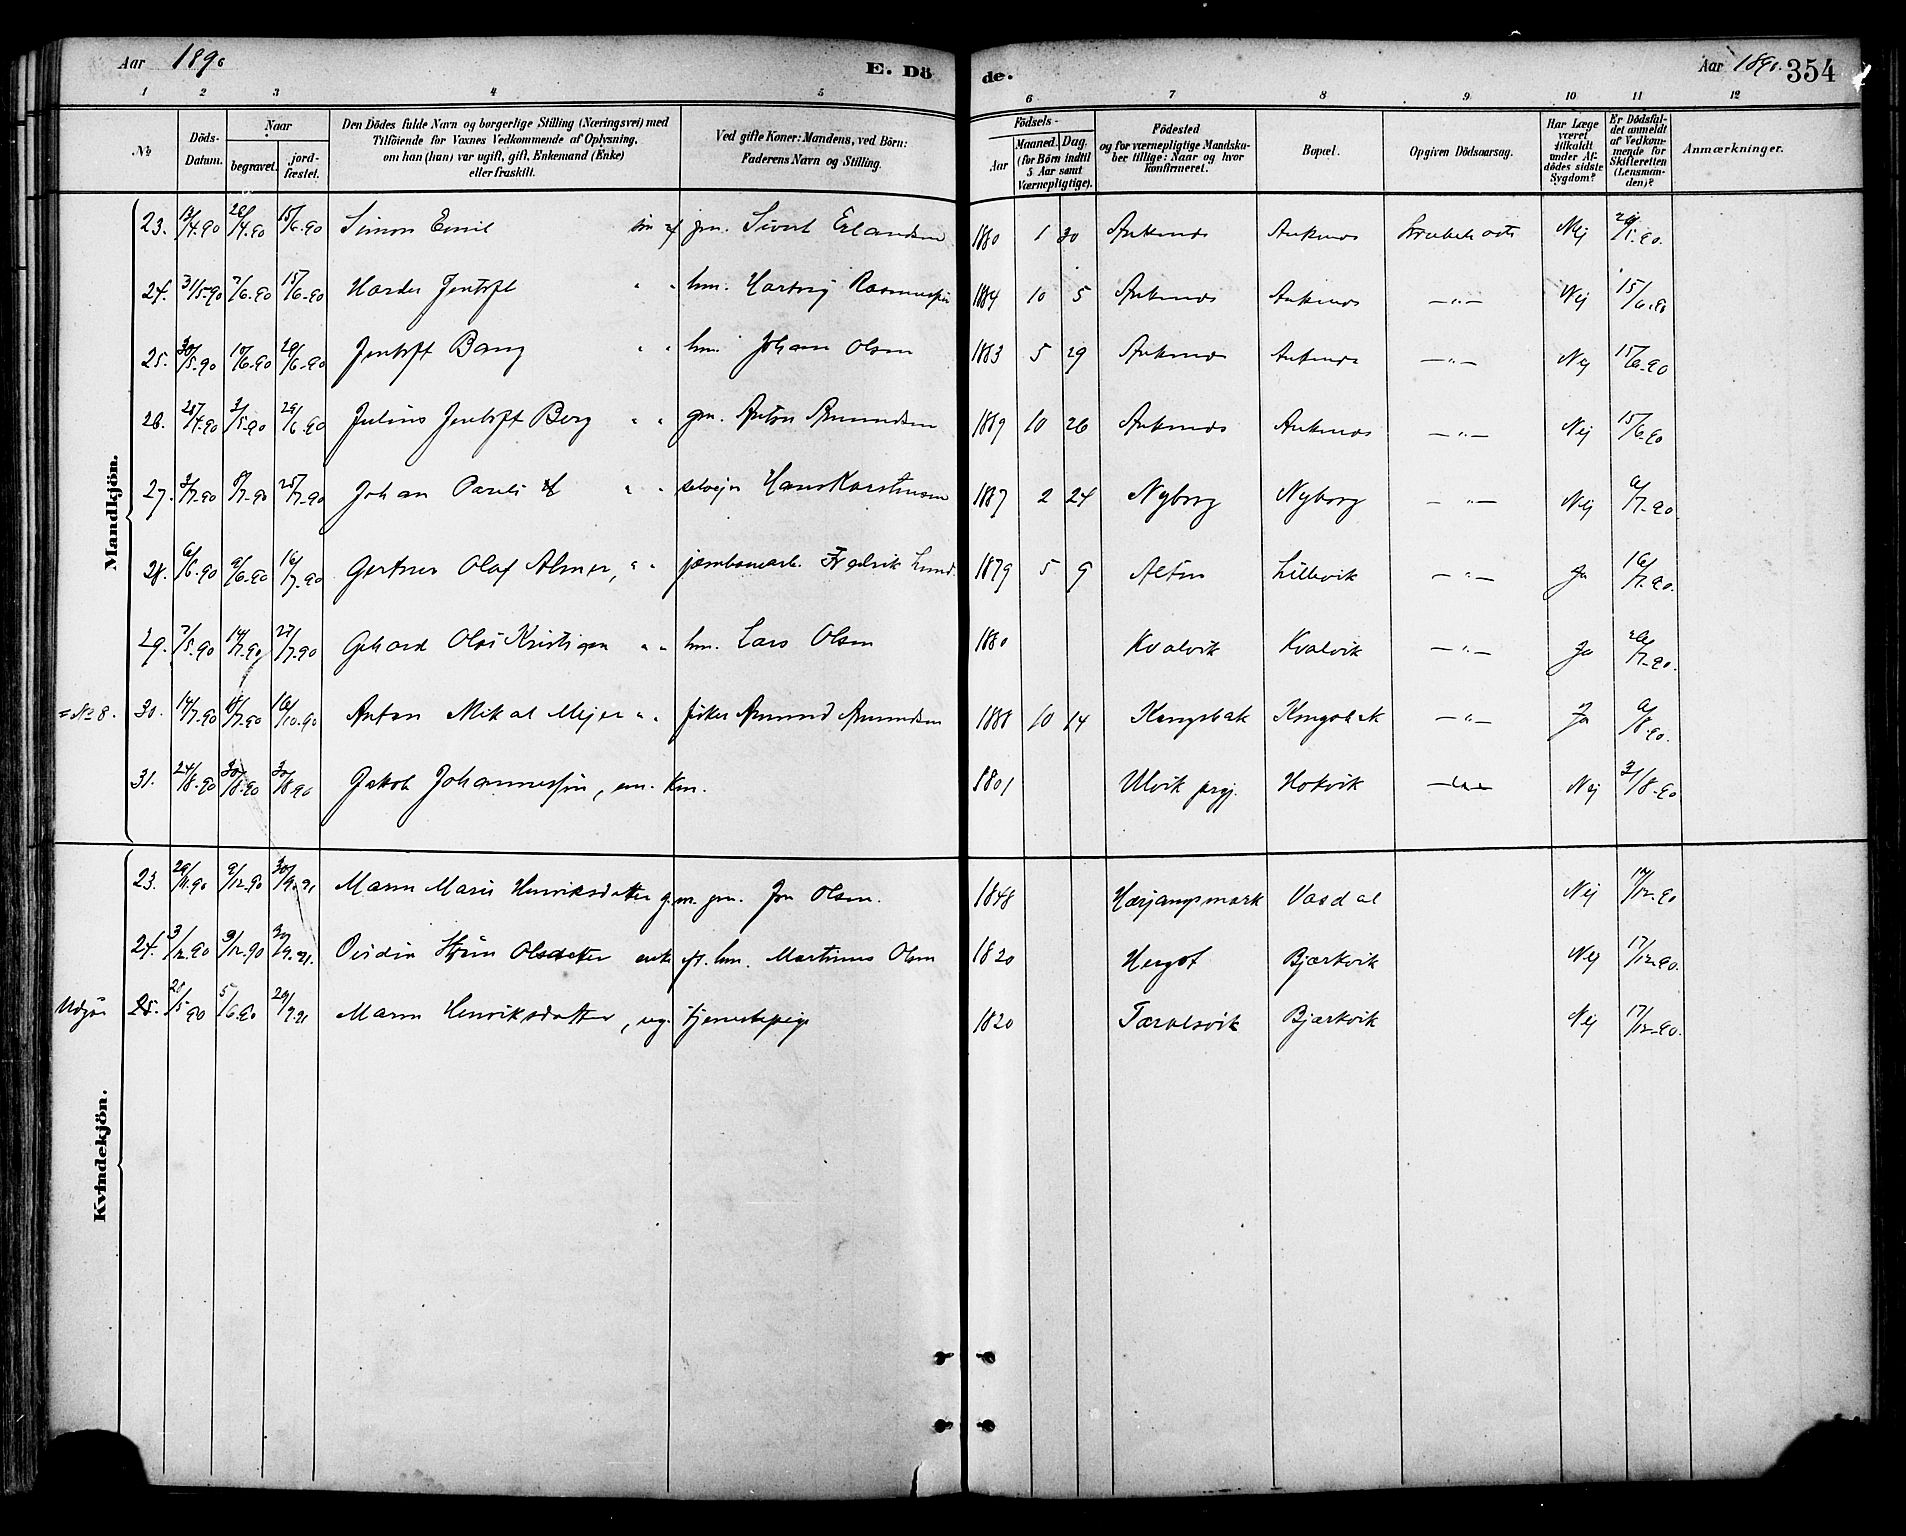 Aar 1890 E. Dö de. Aar 1890. 354
1 2 3 4 5 6 7 8 9 10 11 12
No
Döds-Datum.
Naar
begravet.
jord-fæstet.
Den Dödes fulde Navn og borgerlige Stilling (Næringsvei) med
Tilföiende for Voxnes Vedkommende af Oplysning,
om han (hun) var ugift, gift, Enkemand (Enke)
eller fraskilt.
Ved gifte Koner: Mandens, ved Börn:
Faderens Navn og Stilling.
Födsels-
Aar
Maaned. Dag.
(for Börn indtil
5 Aar samt
Værnepligtige).
Födested
og for værnepligtige Mandska-
ber tillige: Naar og hvor
konfirmeret.
Bopæl.
Opgiven Dödsaarsag.
Har Læge
været
tilkaldt
under Af-
dödes sidste
Sygdom?
Er Dödsfal-
det anmeldt
af Vedkom-
mende for
Skifteretten
(Lensman-
den)?
Anmærkninger.
Mandkjön.
23. 13/4.90 26/4.90 15/6.90 Simon Emil sön af gm. Sivert Erlandsen 1880 1 30 Ankenes Ankenes Nej
24. 31/5.90 7/6.90 15/6.90 Harder Jentoft " " hm. Hartvig Rasmussen 1884 10 5 Ankenes Ankenes —"— Nej 15/6.90
25. 30/5.90 10/6.90 29/6.90 Jentoft Bang " " hm. Johan Olsen 1883 5 29 Ankenes Ankenes —"— Nej 15/6.90
26. 28/4.90 3/5.90 29/6.90 Julius Jentoft Berg " " gm. Anton Amundsen 1889 10 26 Ankenes Ankenes —"— Nej 15/6.90
27. 3/7.90 8/7.90 25/7.90 Johan Pareli " " selvejer Hans Karstensen 1887 2 24 Nyborg Nyborg —"— Nej 9/7.90
28. 6/6.90 9/6.90 16/7.90 Gertner Olaf Almer, " " jernbanearb. Fredrik Lund. 1879 5 9 Alten Lillevik —"— Ja 16/7.90.
29. 7/5.90 14/7.90 27/7.90 Gehard Olai Kristian " " hm. Lars Olsen 1880 Kvalvik Kvalvik —"— Ja 20/7.90.
= No 8. 30. 14/7.90 18/7.90 16/10.90 Anton Mikal Mejer " " fisker Amund Amundsen 1888 10 14 Kongsbak Kongsbak —"— Ja 9/8.90.
31. 24/8.90 30/8.90 30/8.90 Jakob Johannessen, em. Km. 1801 Ulvik prgj. Hokvik Nej 31/8.90
Kvindekjön.
23. 29/11.90 9/12.90 30/9.91 Maren Marie Henriksdatter g.m. gm. Jon Olsen. 1848 Hærjangsmark Vasdal Nej 17/12.90
24. 3/12.90 9/12.90 30/9.91. Olsdatter enke ef. hm. Martinus Olsen 1820 Hergot Bjærkvik Nej 17/12.90.
25. 28/5.90 5/6.90 29/9.91 Maren Henriksdatter, ug. tjenestepige 1820 Taraldsvik Bjærkvik Nej 17/12.90.